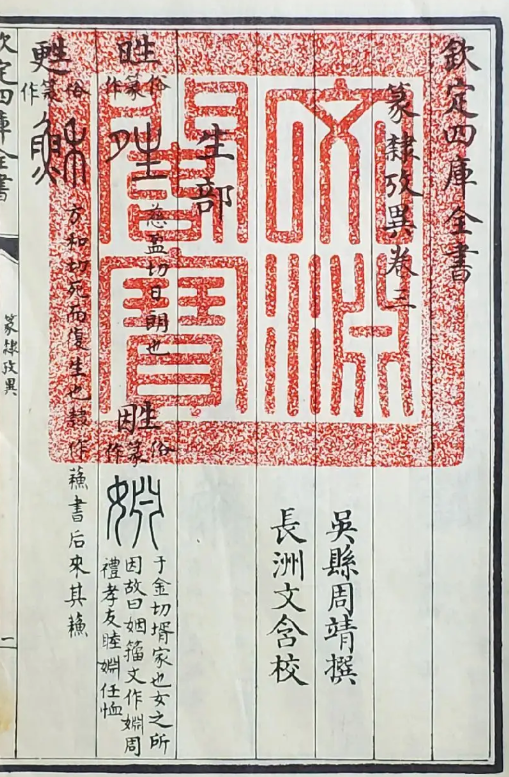 欽定四庫全書
篆隸攷異卷三
吳縣周靖撰
長洲文含校
生部
甠
俗篆作
慈盈切日朗也
俗篆作
于金切壻家也女之所
因故曰姻籀文作婣周
禮孝友睦婣任恤
甦
俗篆作
穌
方和切死而復生也作蘓書后來其蘓
欽定四庫全書
篆隸攷異
二
文淵閣寶